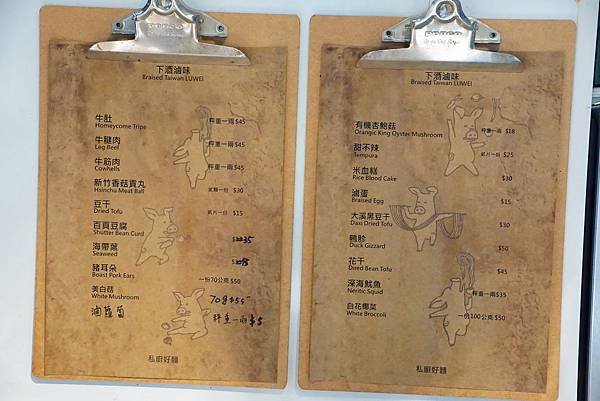 下酒滷味
Braised Taiwan LUWEI
牛肚
Homeycome Tripe
秤重一兩 $45
牛腱肉
Leg Beef
秤重一兩 $45
牛筋肉
Cowhells
秤重一兩 $45
新竹香菇貢丸
Hsinchu Meat Ball
貳顆一份 $30
豆干
Dried Tofu
貳片一份 $15
百頁豆腐
Shutter Bean Curd
35
海帶葉
Seaweed
豬耳朵
Boast Pork Ears
一份70公克 $50
美白菇
White Mushroom
70g $55
滷蘿蔔
秤重一兩 $5
私廚好麵
下酒滷味
Braised Taiwan LUWEI
有機杏鮑菇
Orangic King Oyster Mushroom
秤重一兩 $18
甜不辣
Tempura
貳片一份 $25
米血糕
Rice Blood Cake
$30
滷蛋
Braised Egg
$15
大溪黑豆干
Daxi Dried Tofu
$30
鴨胗
Duck Gizzard
$50
花干
Dired Bean Tofu
$45
深海魷魚
Neritic Squid
秤重一兩 $35
白花椰菜
White Broccoli
一份100公克 $50
私廚好麵